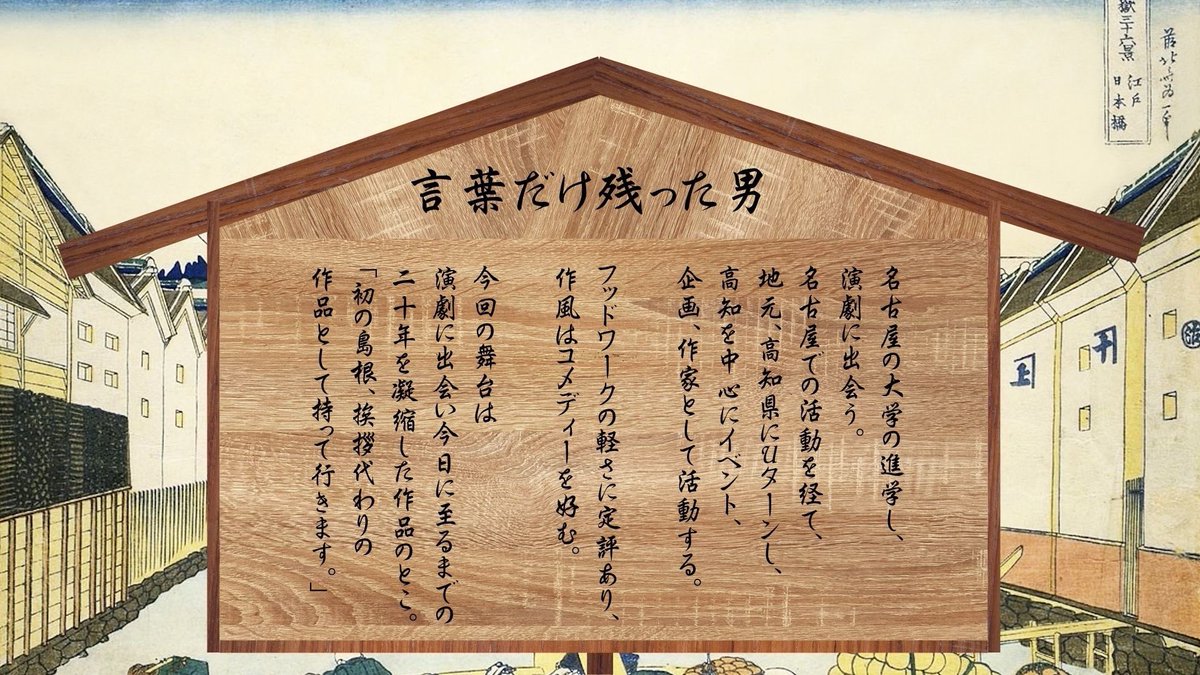 言葉だけ残った男
名古屋の大学の進学し、
演劇に出会う。
名古屋での活動を経て、
地元、高知県にUターンし、
高知を中心にイベント、
企画、作家として活動する。
フッドワークの軽さに定評あり、
作風はコメディーを好む。
今回の舞台は
演劇に出会い今日に至るまでの
二十年を凝縮した作品のとこ。
「初の島根、挨拶代わりの
作品として持って行きます。」
嶽三十六景
江戸
日本橋
上